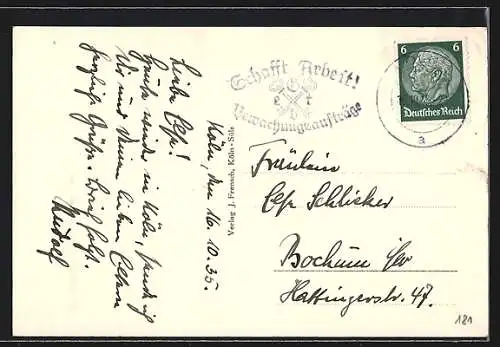 Köln, den 16.10.35.
Liebe Else!
Grüße
in Köln, sende ich
Dir und Deinen lieben Eltern
herzliche Grüße. Brief folgt.
Rudolf
Verlag J. Frensch, Köln-Sülz
Schafft Arbeit!
Bewachungsaufträge
6 6
Deutsches Reich
a
Fräulein
Else Schlisker
Bochum
Hattingerstr. 47.
181